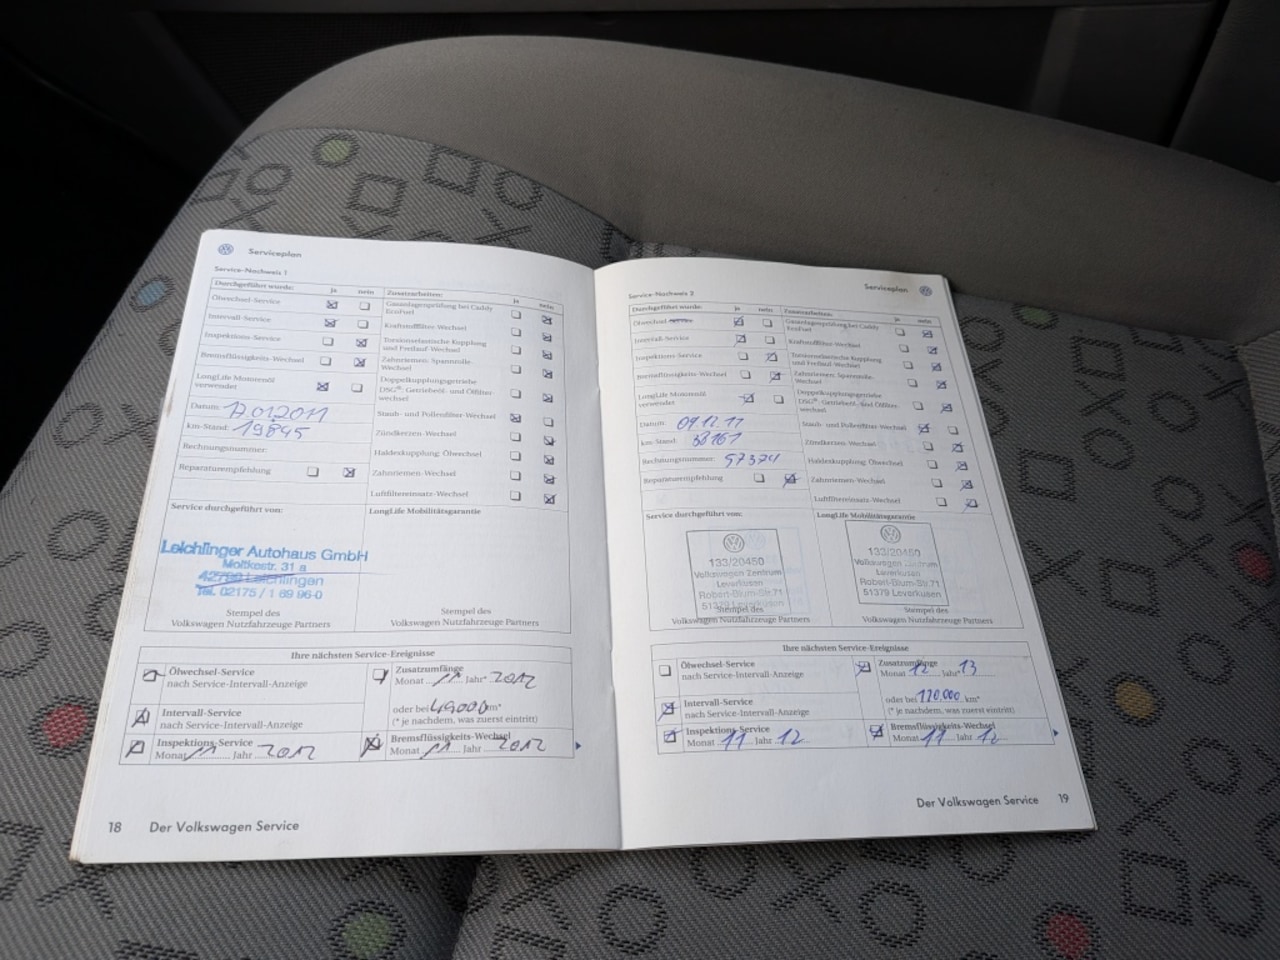 Serviceplan
Service-Nachweis 1
Durchgeführt wurde: ja nein Zusatzarbeiten: ja nein
Ölwechsel-Service
Intervall-Service
Inspektions-Service
Bremsflüssigkeits-Wechsel
LongLife Motorenöl
verwendet
Datum:
km-Stand: 19845
Rechnungsnummer:
Reparaturempfehlung
Gasanlagenprüfung bei Caddy
EcoFuel
Kraftstofffilter-Wechsel
Torsionselastische Kupplung
und Freilauf-Wechsel
Zahnriemen, Spannrolle-
Wechsel
Doppelkupplungsgetriebe
DSG®: Getriebeöl- und Ölfilter-
wechsel
Staub- und Pollenfilter-Wechsel
Zündkerzen-Wechsel
Haldexkupplung: Ölwechsel
Zahnriemen-Wechsel
Luftfiltereinsatz-Wechsel
Service durchgeführt von:
LongLife Mobilitätsgarantie
Leichlinger Autohaus GmbH
Moltkestr. 31 a
42799 Leichlingen
Tel. 02175 / 1 69 96-0
Stempel des
Volkswagen Nutzfahrzeuge Partners
Stempel des
Volkswagen Nutzfahrzeuge Partners
Ihre nächsten Service-Ereignisse
Ölwechsel-Service
nach Service-Intervall-Anzeige
Zusatzumfänge
Monat 11 Jahr* 2012
oder bei 49000 km*
(* je nachdem, was zuerst eintritt)
Intervall-Service
nach Service-Intervall-Anzeige
Inspektions-Service
Monat 11 Jahr 2012
Bremsflüssigkeits-Wechsel
Monat 11 Jahr 2012
18 Der Volkswagen Service
Serviceplan
Service-Nachweis 2
Durchgeführt wurde: ja nein Zusatzarbeiten: ja nein
Ölwechsel-Service
Intervall-Service
Inspektions-Service
Bremsflüssigkeits-Wechsel
LongLife Motorenöl
verwendet
Datum: 09.12.11
km-Stand: 38161
Rechnungsnummer: 97374
Reparaturempfehlung
Gasanlagenprüfung bei Caddy
EcoFuel
Kraftstofffilter-Wechsel
Torsionselastische Kupplung
und Freilauf-Wechsel
Zahnriemen, Spannrolle-
Wechsel
Doppelkupplungsgetriebe
DSG®: Getriebeöl- und Ölfilter-
wechsel
Staub- und Pollenfilter-Wechsel
Zündkerzen-Wechsel
Haldexkupplung: Ölwechsel
Zahnriemen-Wechsel
Luftfiltereinsatz-Wechsel
Service durchgeführt von:
LongLife Mobilitätsgarantie
133/20450
Volkswagen Zentrum
Leverkusen
Robert-Blum-Str.71
51379 Leverkusen
Stempel des
Volkswagen Nutzfahrzeuge Partners
133/20450
Volkswagen Zentrum
Leverkusen
Robert-Blum-Str.71
51379 Leverkusen
Stempel des
Volkswagen Nutzfahrzeuge Partners
Ihre nächsten Service-Ereignisse
Ölwechsel-Service
nach Service-Intervall-Anzeige
Zusatzumfänge
Monat 12 Jahr* 13
oder bei 120.000 km*
(* je nachdem, was zuerst eintritt)
Intervall-Service
nach Service-Intervall-Anzeige
Inspektions-Service
Monat 11 Jahr 12
Bremsflüssigkeits-Wechsel
Monat 11 Jahr 12
Der Volkswagen Service 19